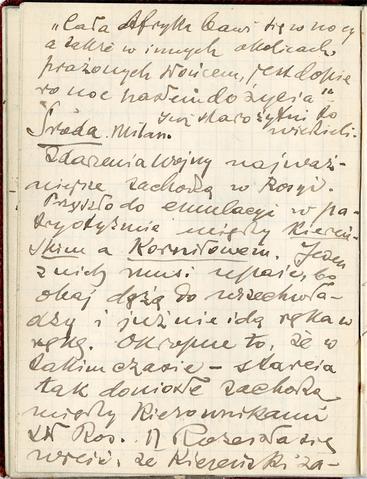 „Cała Afryka bawi się w nocy
a także w innych okolicach
prażonych słońcem, jest dopie
ro noc hasłem do życia"
Już starożytni to
Środa. Milan. wiedzieli.
Zdarzenia wojny najważ-
niejsze zachodzą w Rosyi.
Przyszło do emulacyi w pa-
tryotyzmie między Kiereń-
skim a Korniłowem. Jeden
z nich musi upaść, bo
obaj dążą do wszechwła-
dzy i już nie idą ręka w
rękę. Okropne to, że w
takim czasie – starcia
tak doniosłe zachodzą
między kierownikami
Ros. Rozeszła się
wieść, że Kiereński za-